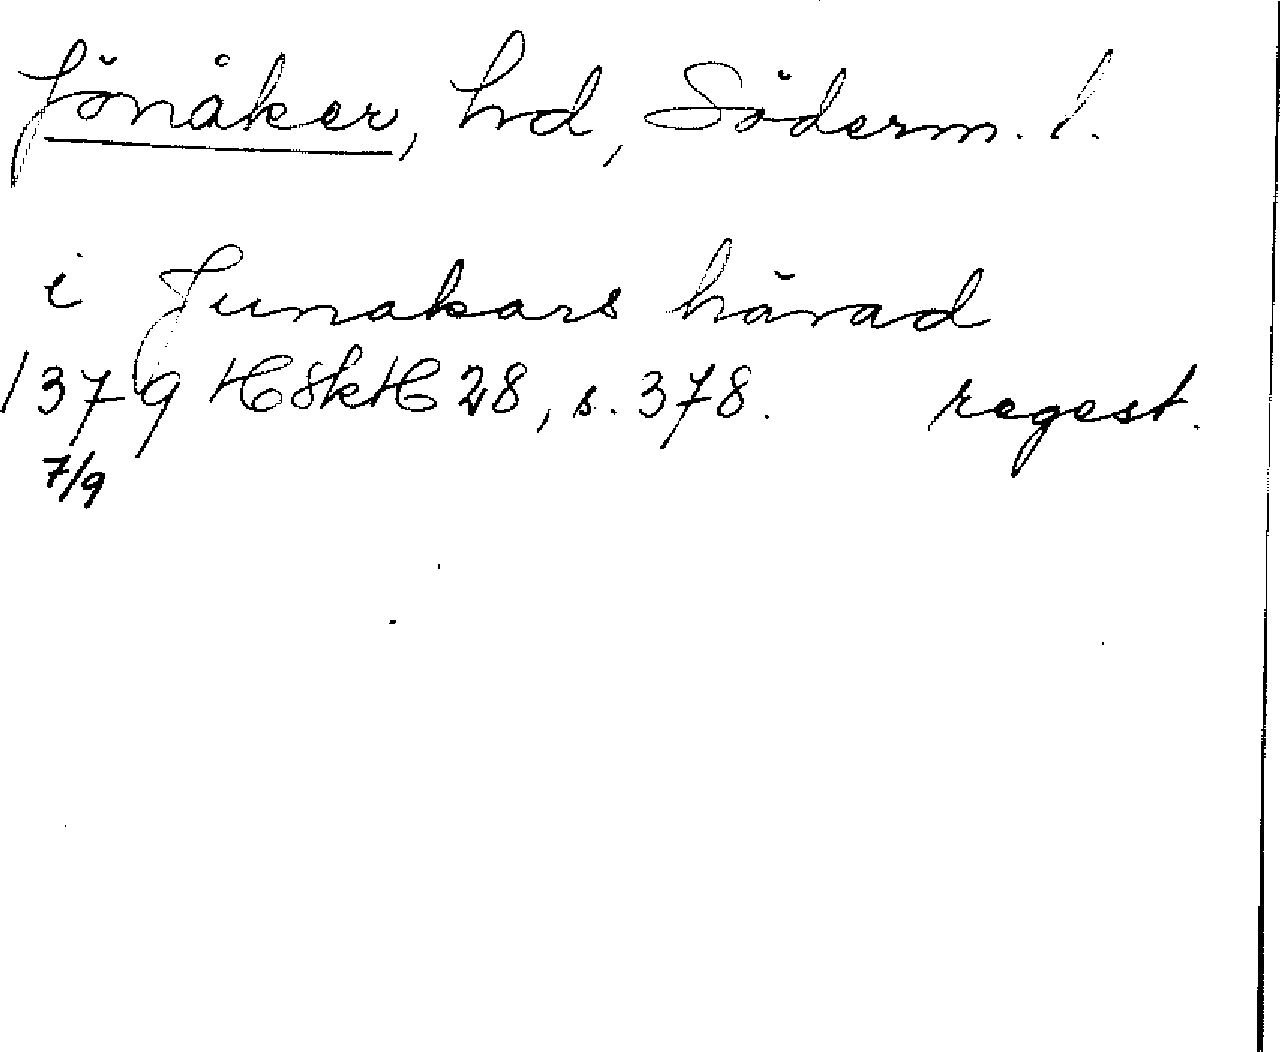 Jönåker, hd, Söderm. l.
i Junakars härad
1379 HSkH 28, s. 378. regest.
7/9